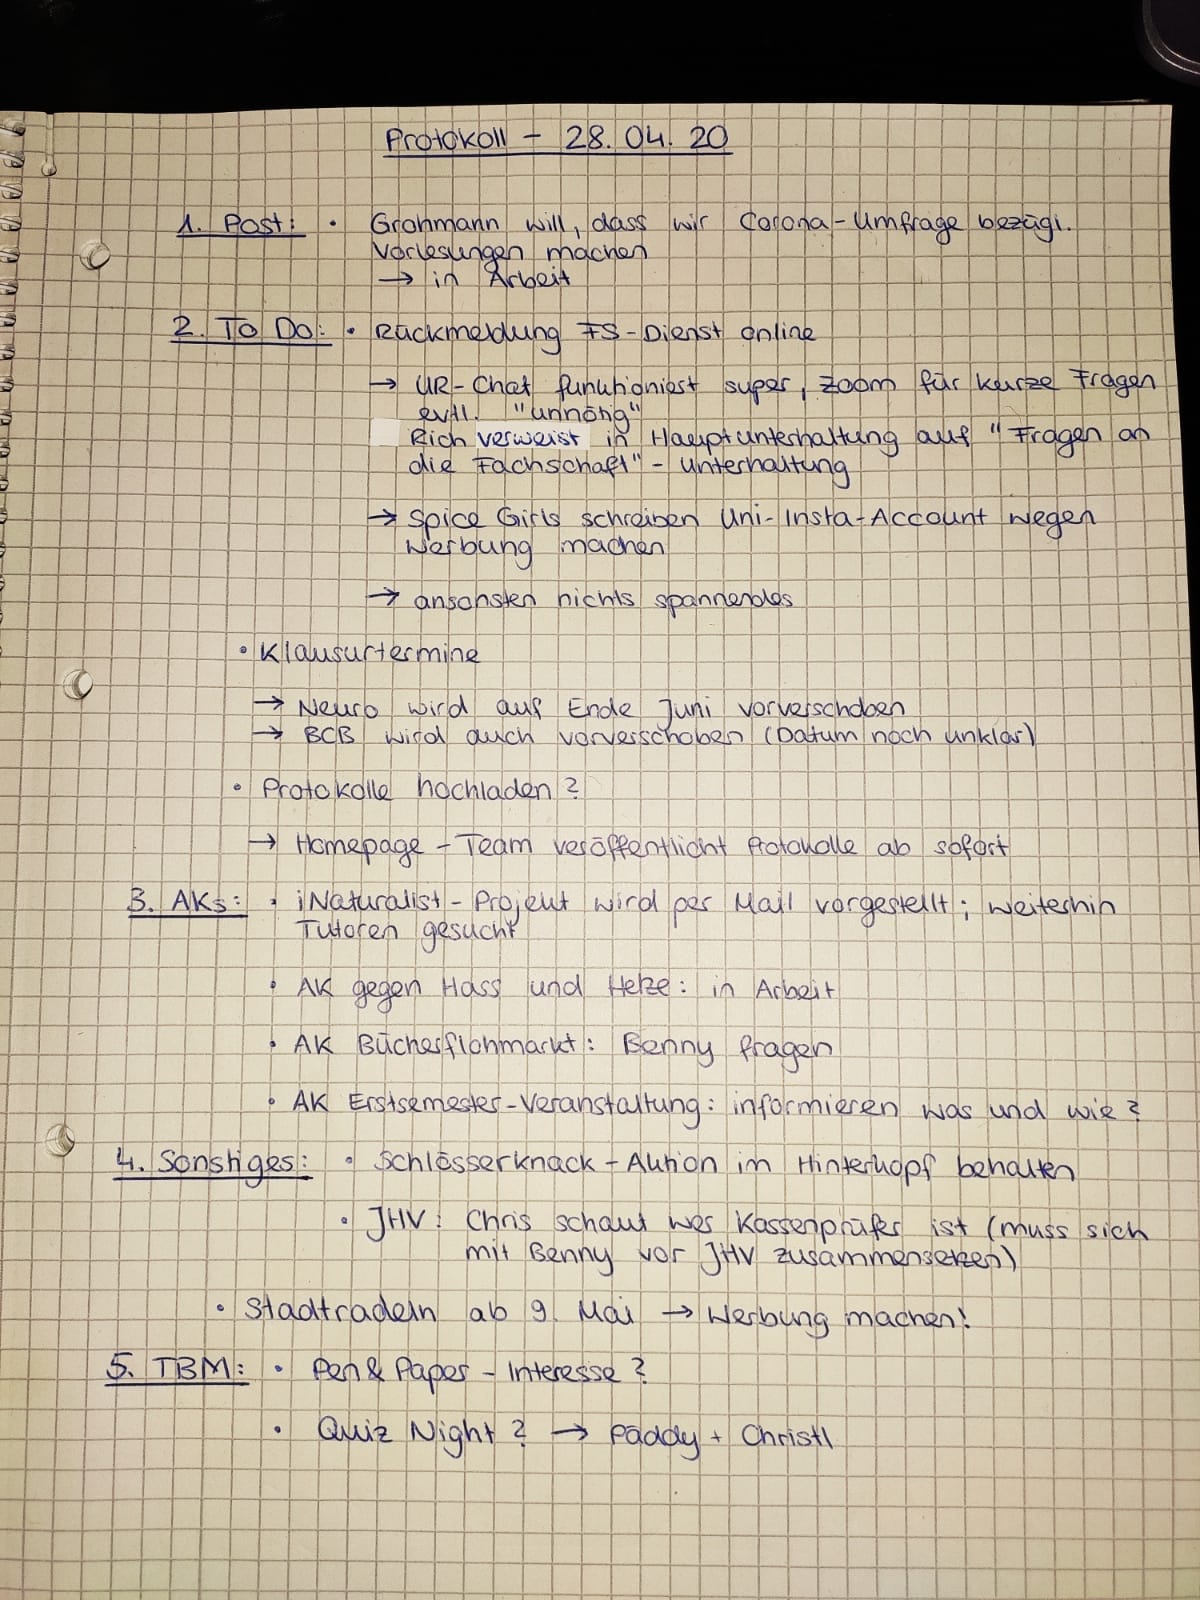 Protokoll - 28.04.20
1. Post: • Grohmann will, dass wir Corona-Umfrage bezügl.
Vorlesungen machen
→ in Arbeit
2. To Do: • Rückmeldung FS-Dienst online
→ UR-Chat funktioniert super, Zoom für kurze Fragen
evtl. "unnötig"
Rich verweist in Hauptunterhaltung auf "Fragen an
die Fachschaft" - Unterhaltung
→ Spice Girls schreiben Uni-Insta-Account wegen
Werbung machen
→ ansonsten nichts spannendes
• Klausurtermine
→ Neuro wird auf Ende Juni vorverschoben
→ BCB wird auch vorverschoben (Datum noch unklar)
• Protokolle hochladen?
→ Homepage-Team veröffentlicht Protokolle ab sofort
3. AKs: • iNaturalist-Projekt wird per Mail vorgestellt; weiterhin
Tutoren gesucht
• AK gegen Hass und Hetze: in Arbeit
• AK Bücherflohmarkt: Benny fragen
• AK Erstsemester-Veranstaltung: informieren was und wie?
4. Sonstiges: • Schlösserknack-Aktion im Hinterkopf behalten
• JHV: Chris schaut wer Kassenprüfer ist (muss sich
mit Benny vor JHV zusammensetzen)
• Stadtradeln ab 9. Mai → Werbung machen!
5. TBM: • Pen & Paper - Interesse?
• Quiz Night? → Paddy + Christl